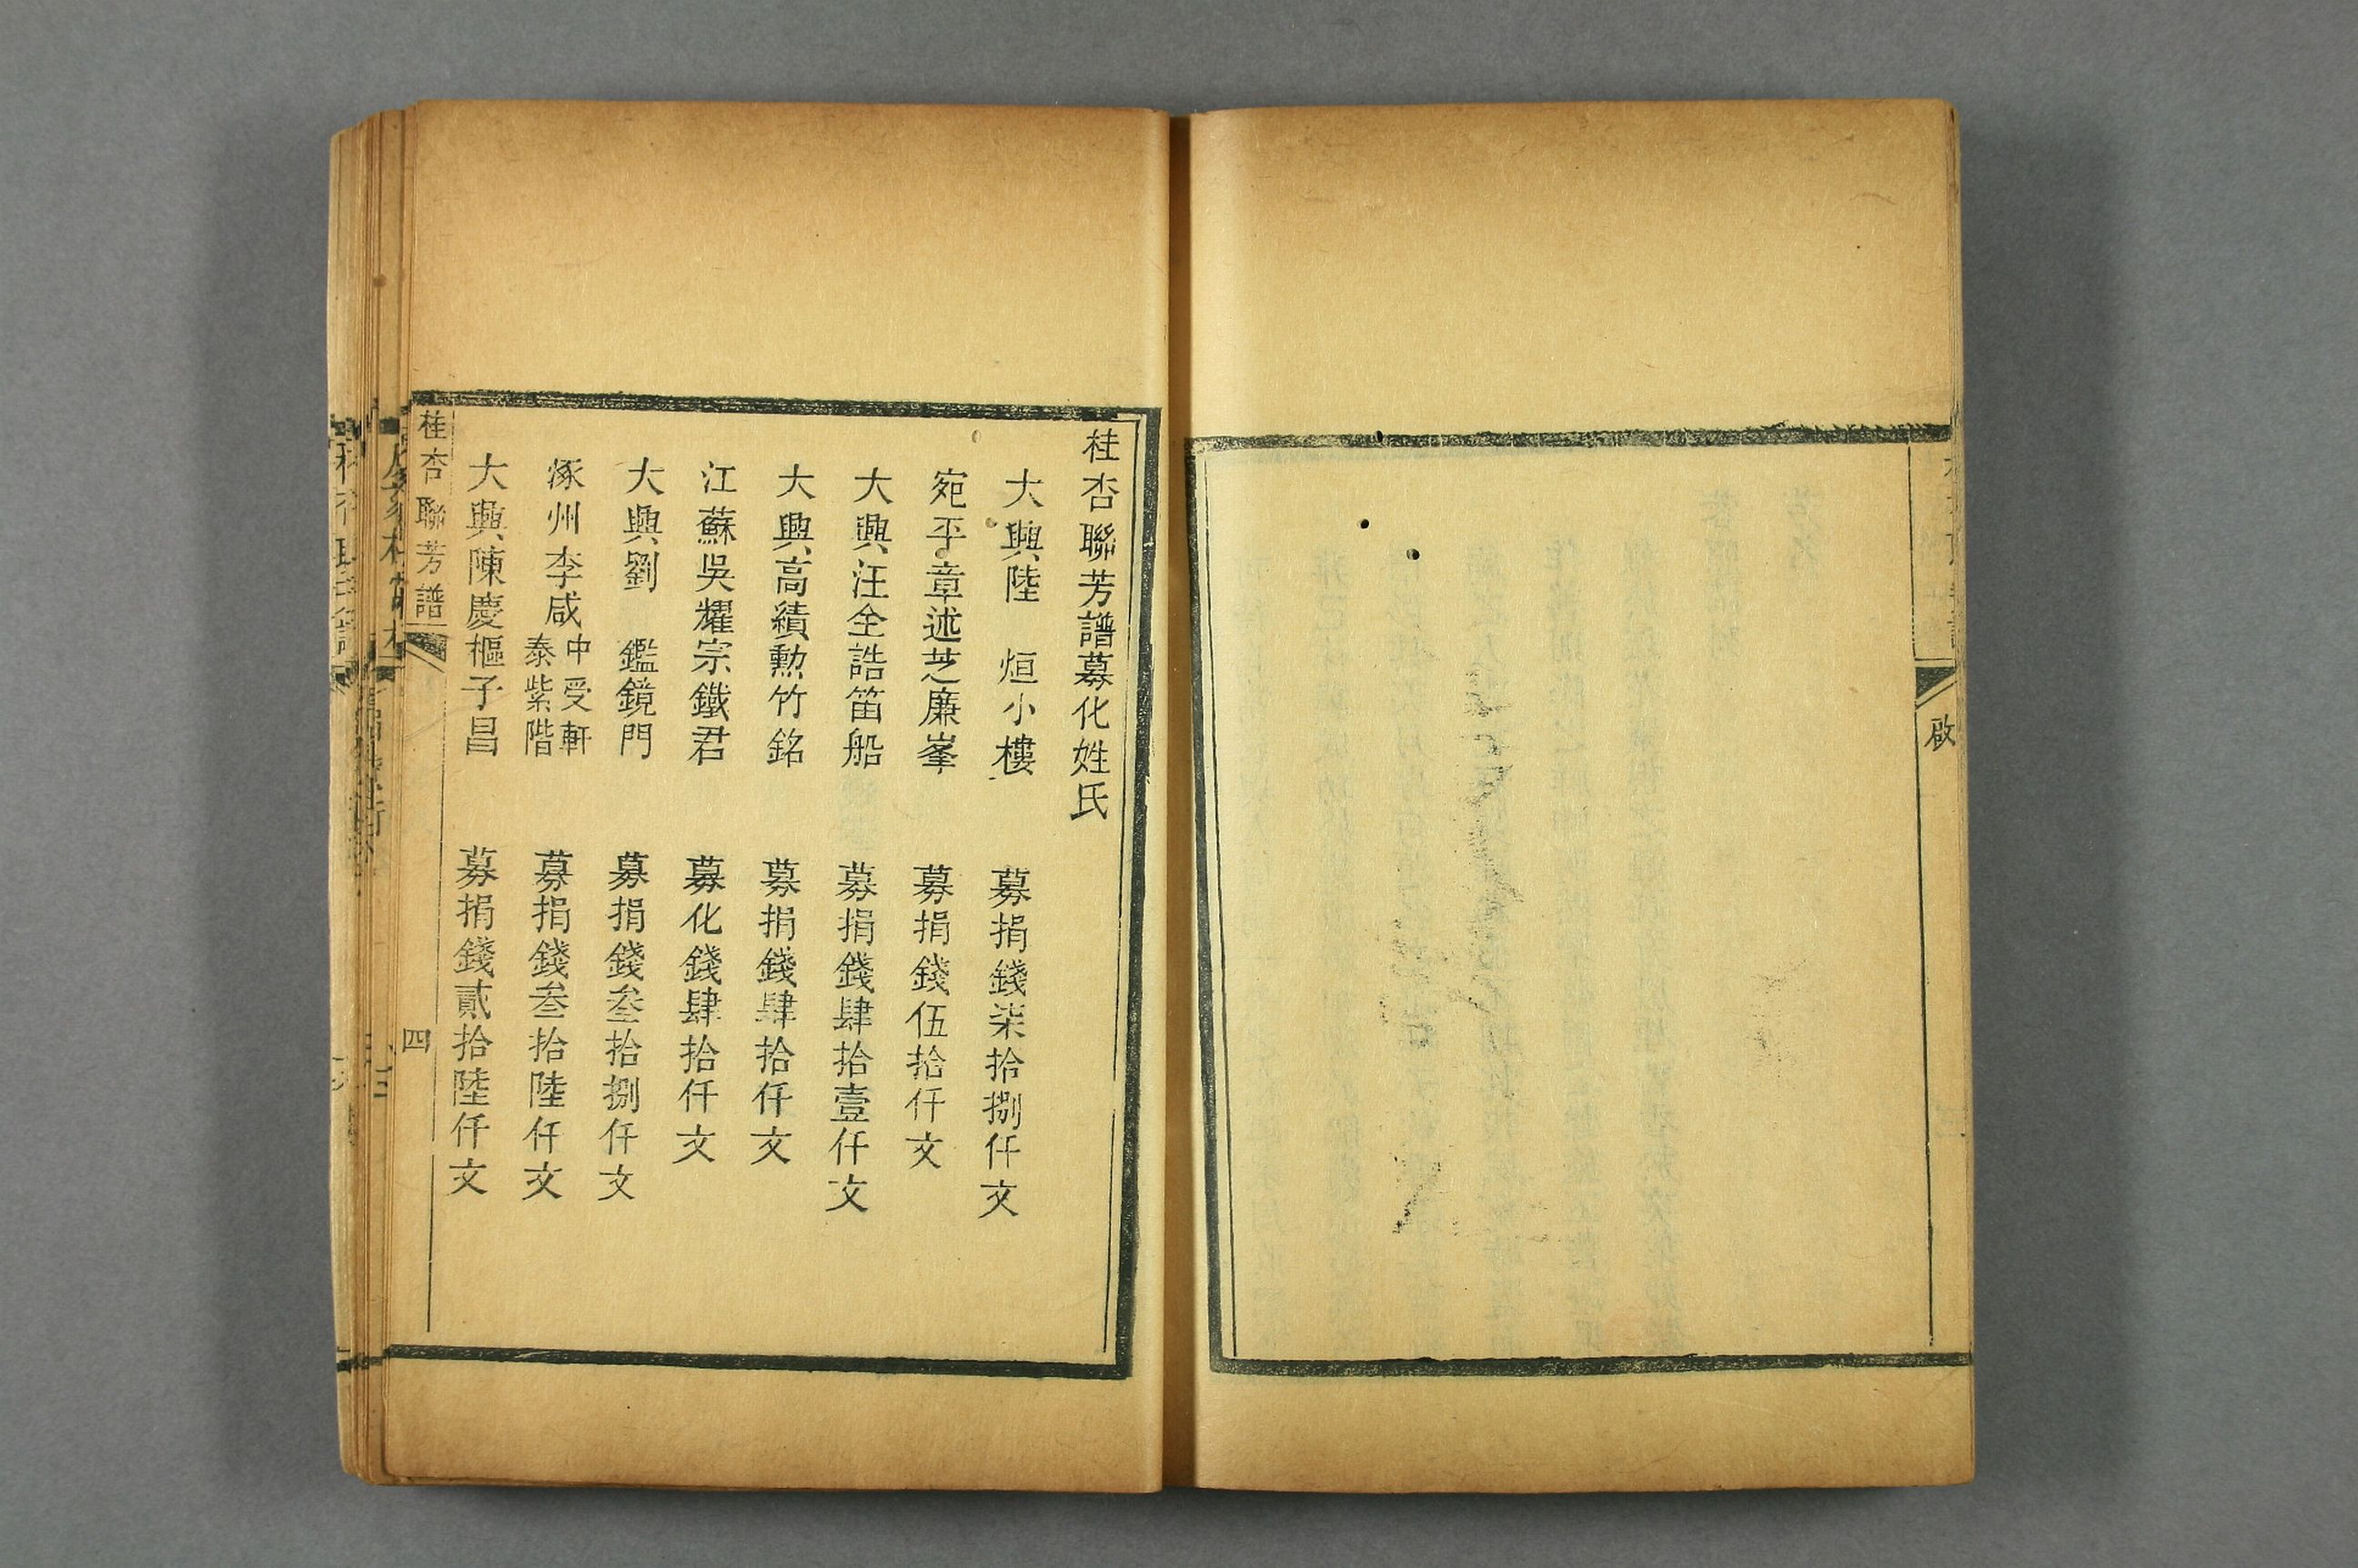 啟
桂杏聯芳譜募化姓氏
大興陸　烜小樓　募捐錢柒拾捌仟文
宛平章述芝廉峯　募捐錢伍拾仟文
大興汪全誥笛船　募捐錢肆拾壹仟文
大興高績勲竹銘　募捐錢肆拾仟文
江蘇吳耀宗鐵君　募化錢肆拾仟文
大興劉　鑑鏡門　募捐錢叁拾捌仟文
涿州李咸中受軒泰紫階　募捐錢叁拾陸仟文
大興陳慶樞子昌　募捐錢貳拾陸仟文
桂杏聯芳譜　四